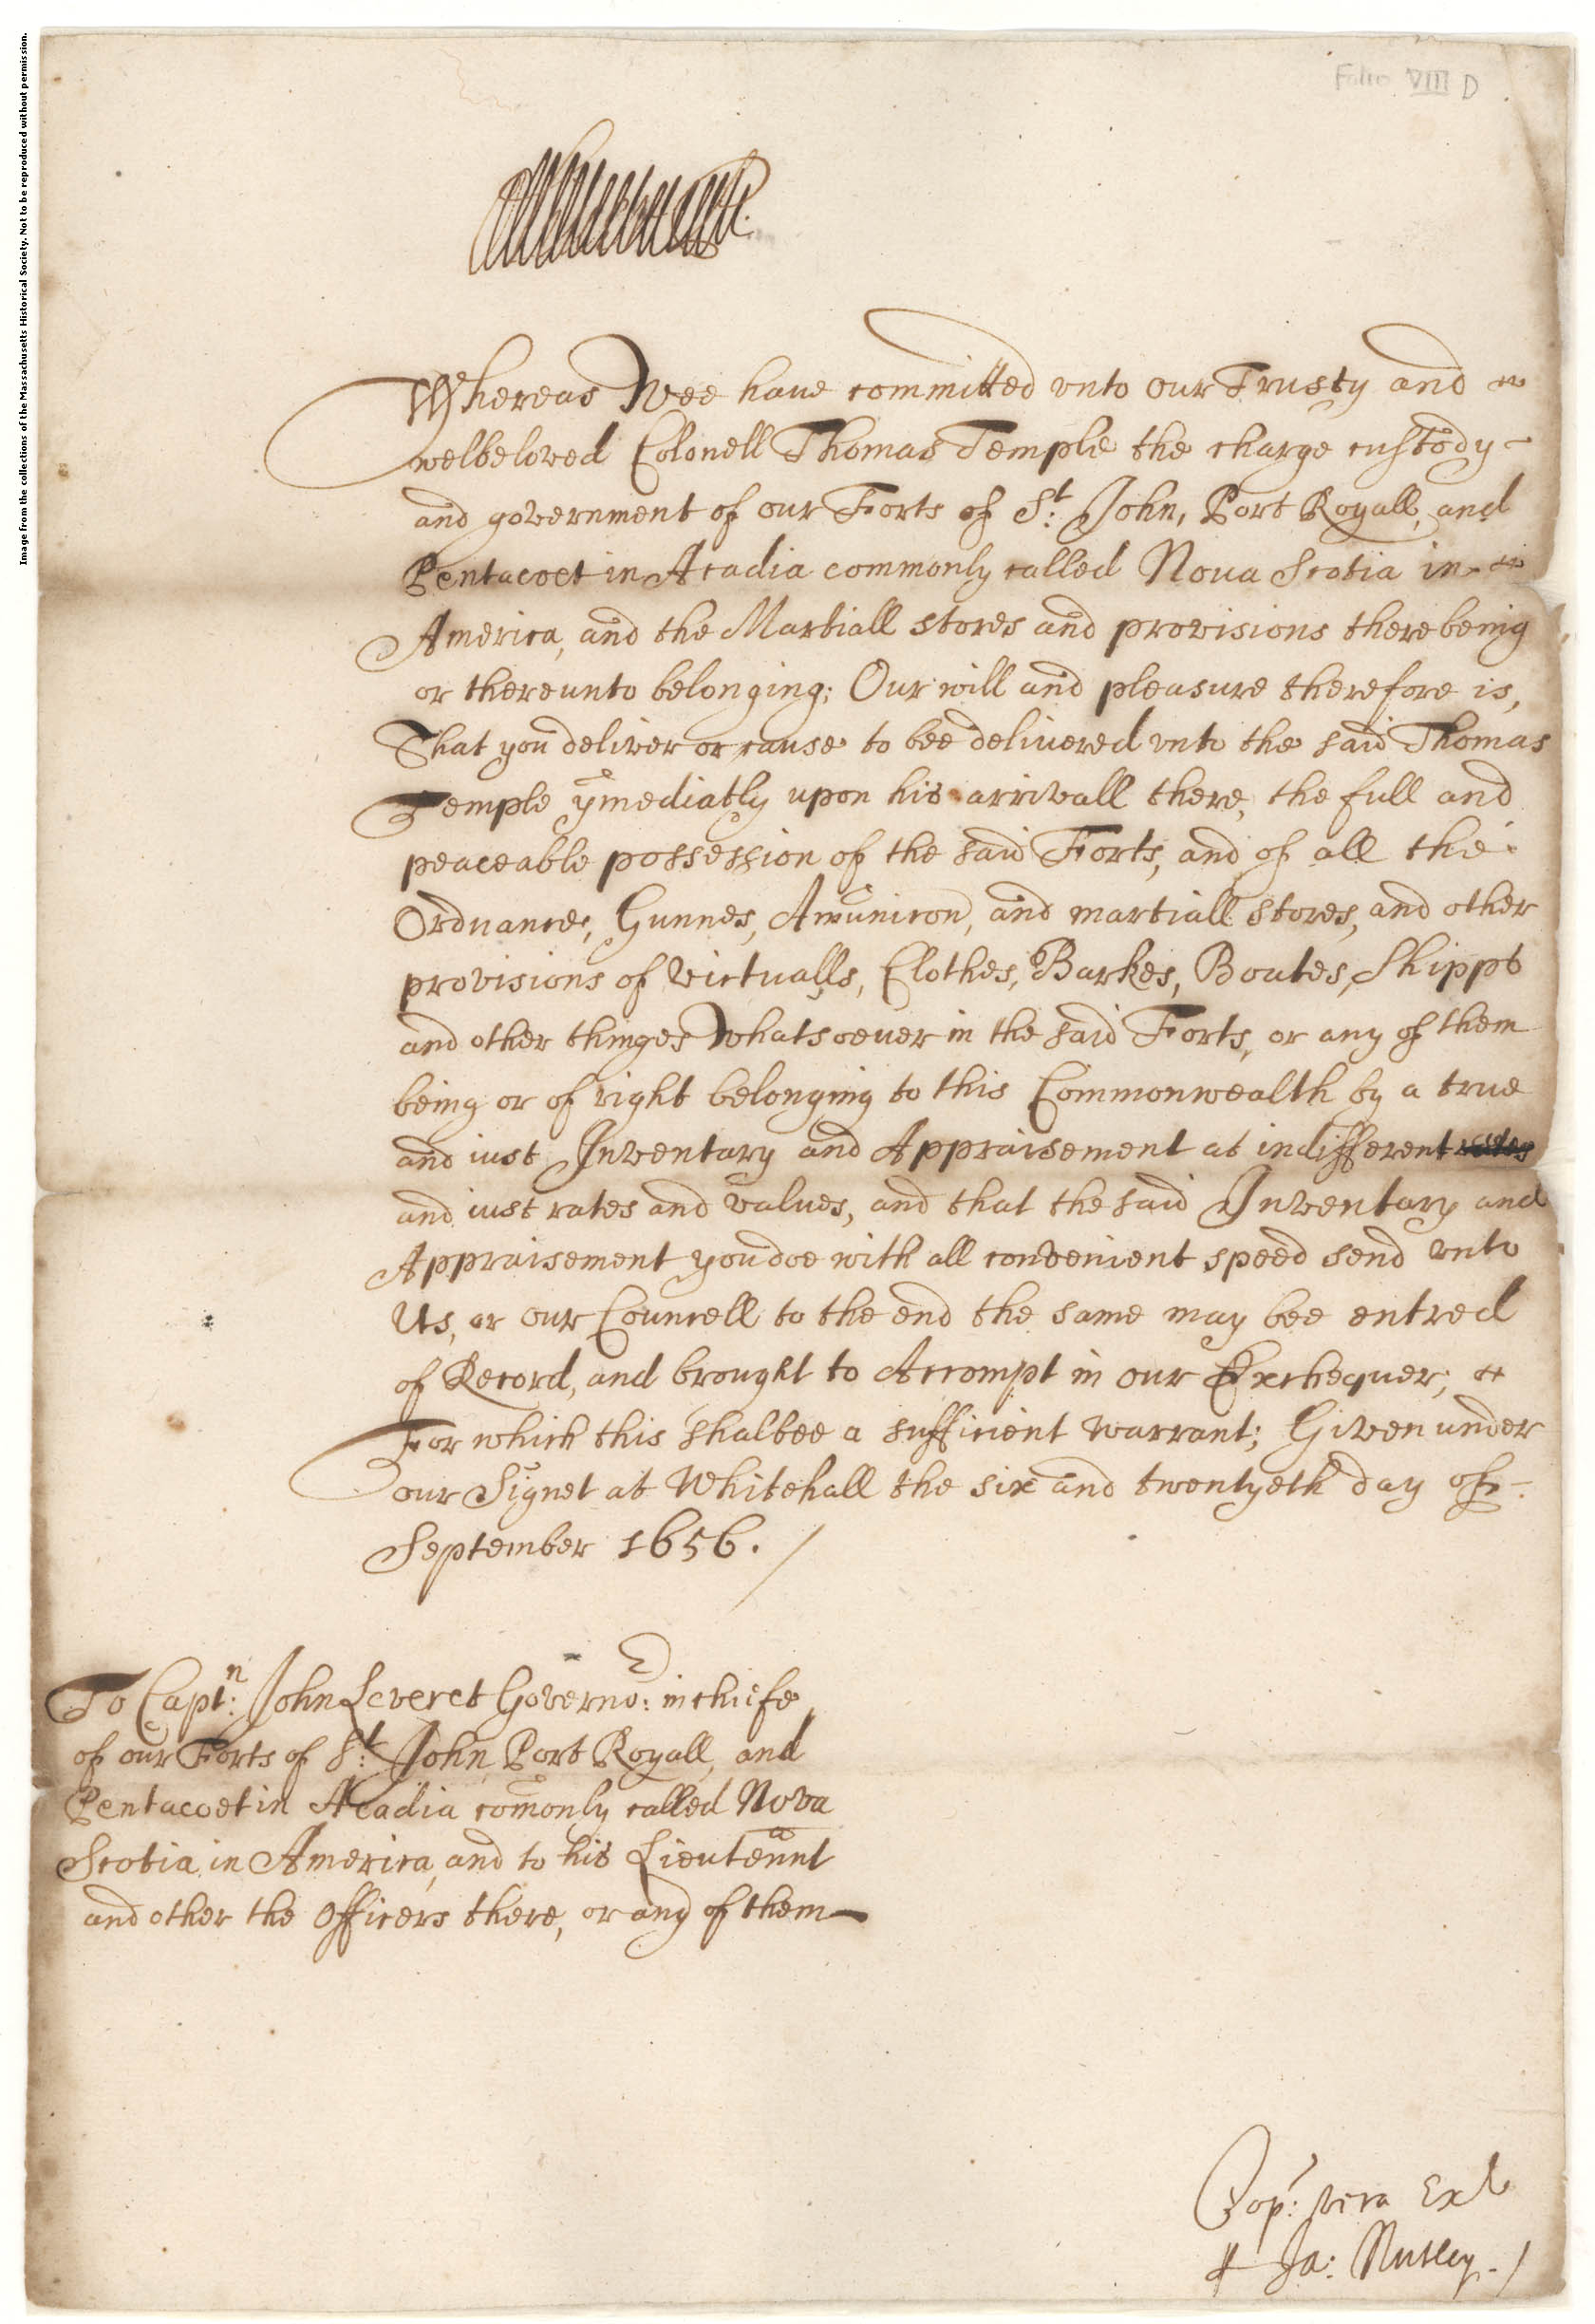 Image from the collections of the Massachusetts Historical Society. Not to be reproduced without permission.
Folio VIII D
Whereas Wee haue committed vnto our Trusty and
welbeloved Colonell Thomas Temple the charge custody
and government of our Forts of St: John, Port Royall, and
Pentacoet in Acadia commonly called Noua Scotia in
America, and the Martiall stores and provisions there being
or thereunto belonging; Our will and pleasure therefore is,
That you deliver or cause to bee delivered vnto the said Thomas
Temple ymediatly upon his arrivall there, the full and
peaceable possession of the said Forts, and of all the
Ordnance, Gunnes, Amunicon, and martiall stores, and other
provisions of victualls, Clothes, Barkes, Boates, Shipps
and other thinges Whatsoeuer in the said Forts, or any of them
being or of right belonging to this Commonwealth by a true
and iust Inventary and Appraisement at indifferent rates
and iust rates and values, and that the said Inventary and
Appraisement you doe with all convenient speed send vnto
Us, or our Councell to the end the same may bee entred
of Record, and brought to Accompt in our Exchequer,
For which this shalbee a sufficient warrant; Given under
our Signet at Whitehall the six and twentyeth day of
September 1656.
To Captn: John Leveret Governo: in chiefe
of our Forts of St: John Port Royall, and
Pentacoet in Acadia comonly called Nova
Scotia in America, and to his Lieutennt
and other the Officers there, or any of them
Cop: vera Ext
Ja: Nutley